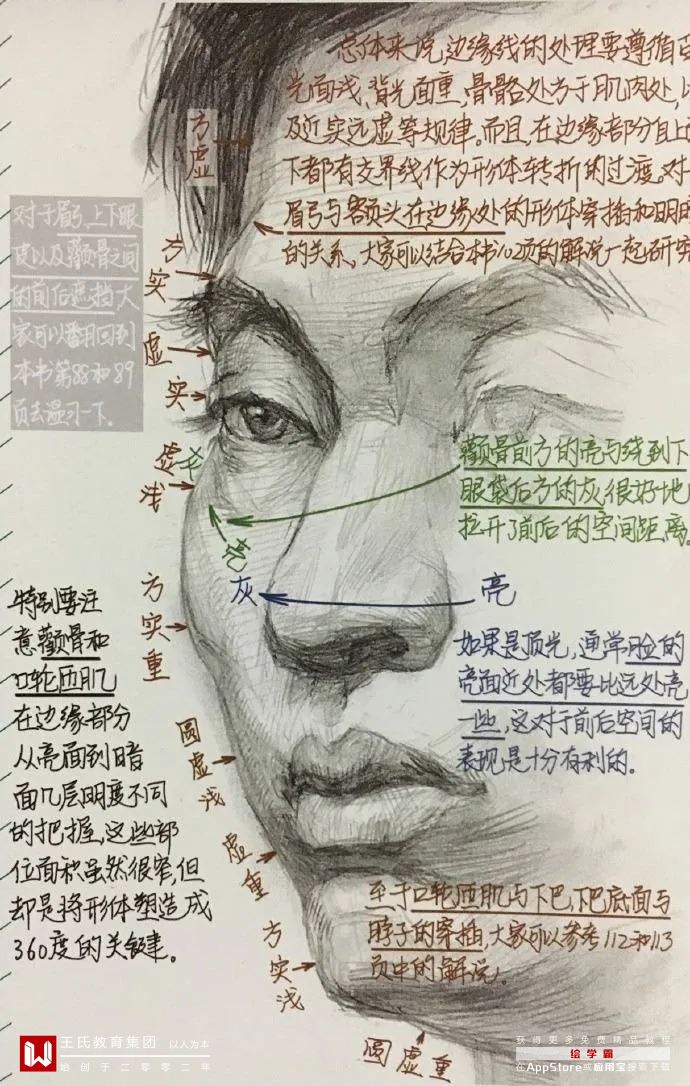 总体来说,边缘线的处理要遵循受
光面浅、背光面重,骨骼处方于肌肉处,以
及近实远虚等规律。而且,在边缘部分自上
下都有交界线作为形体转折的过渡。对于
眉弓与额头在边缘处的形体穿插和明暗
的关系,大家可以结合本书102项的解说一起研究
方虚
对于眉弓、上下眼
皮以及颧骨之间
的前后遮挡大
家可以翻回到
本书第88和89
页去温习一下。
方实
虚
实
虚浅
卡
颧骨前方的亮与绕到下
眼袋后方的灰很好地
拉开了前后的空间距离。
灰
亮
方实重
特别要注
意颧骨和
口轮匝肌
在边缘部分
从亮面到暗
面几层明度不同
的把握,这些部
位面积虽然很窄,但
却是将形体塑造成
360度的关键。
如果是顶光,通常脸的
亮面近处都要比远处亮
一些,这对于前后空间的
表现是十分有利的。
圆虚浅
虚重
至于口轮匝肌与下巴、下巴底面与
脖子的穿插,大家可以参考112和113
页中的解说。
方实浅
圆虚重
王氏教育集团 以人为本
始创于二零零二年
获得更多免费精品教程
绘学霸
在AppStore或应用宝搜索下载